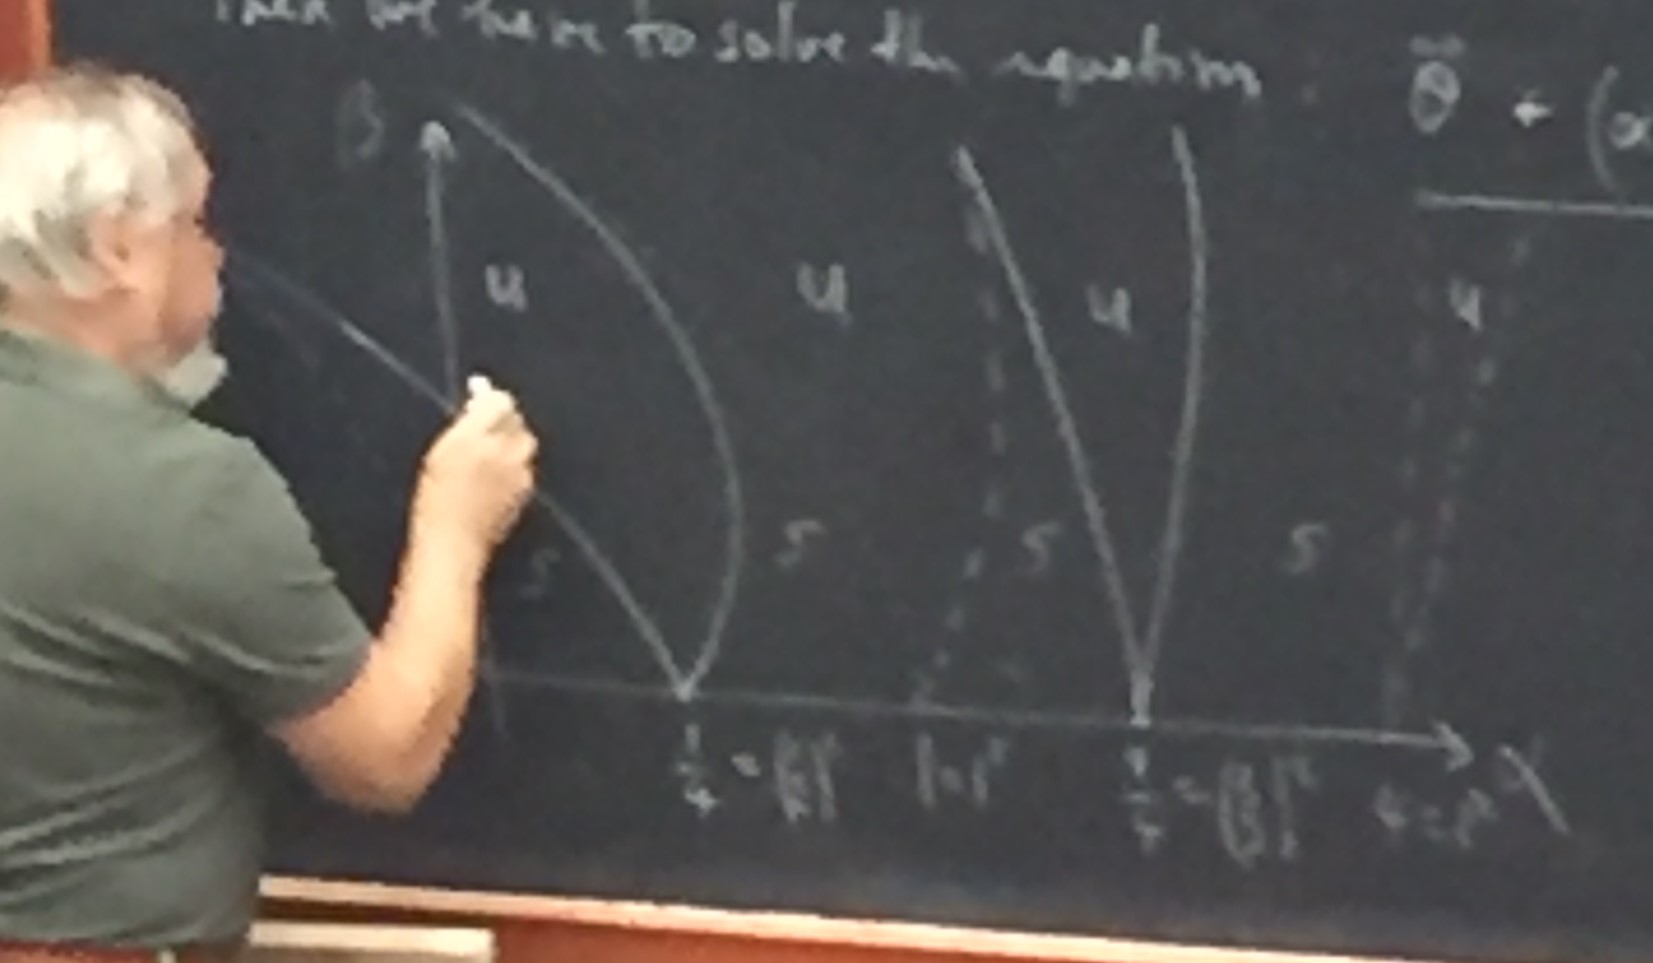 Then we have to solve the equation
θ̈ + (α
β
u u u u
s s s s
1/4 = (1/2)² 1=1² 9/4 = (3/2)² 4=2² α